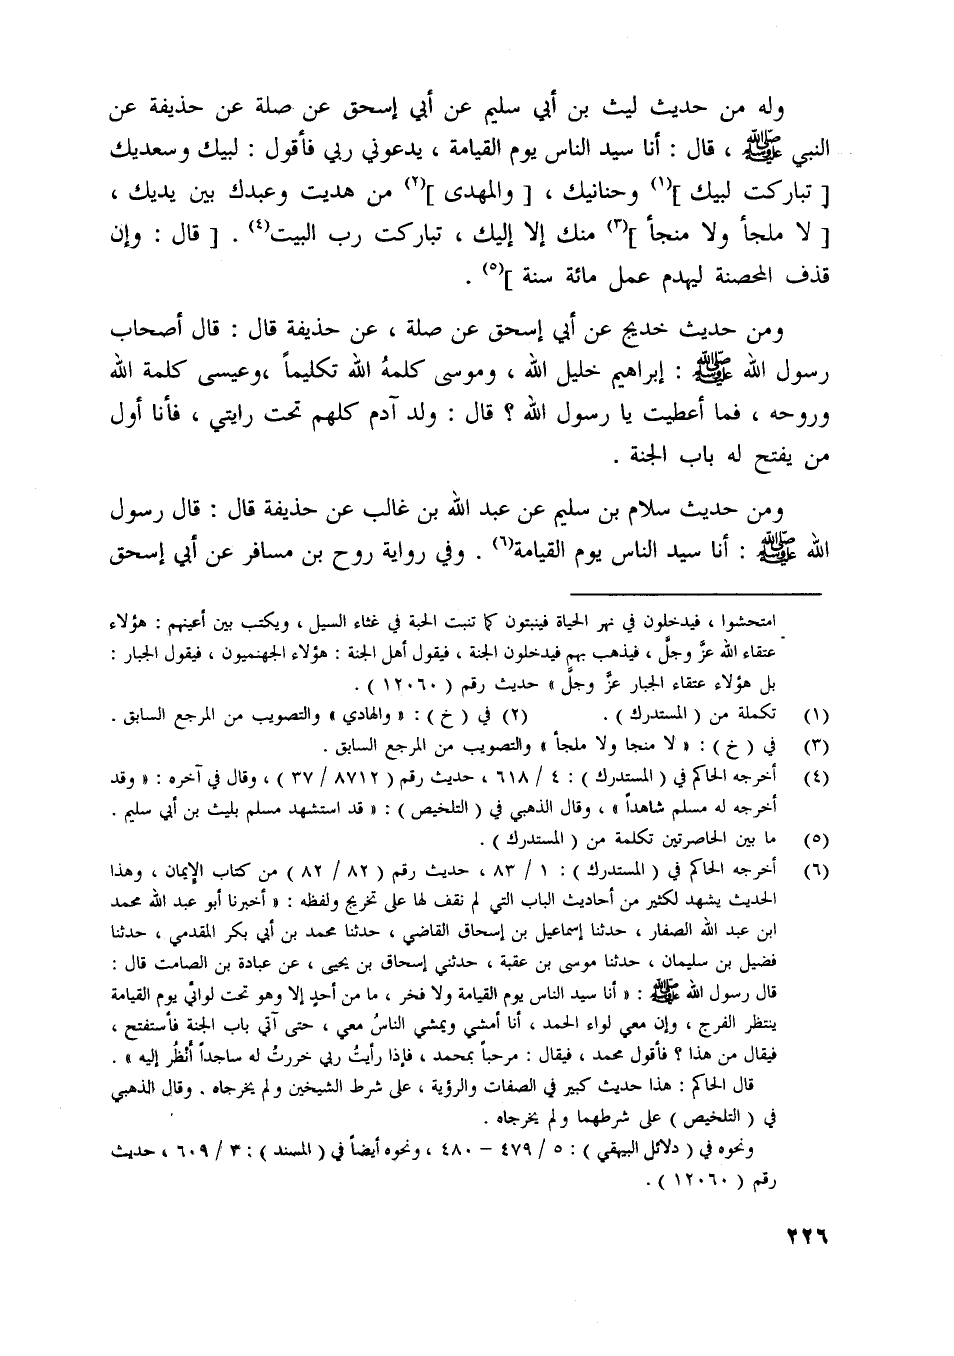 وله من حديث ليث بن أبي سليم عن أبي إسحق عن صلة عن حذيفة عن
النبي ﷺ ، قال : أنا سيد الناس يوم القيامة ، يدعوني ربي فأقول : لبيك وسعديك
[ تباركت لبيك ](١) وحنانيك ، [ والمهدى ](٢) من هديت وعبدك بين يديك ،
[ لا ملجأ ولا منجأ ](٣) منك إلا إليك ، تباركت رب البيت(٤) . [ قال : وإن
قذف المحصنة ليهدم عمل مائة سنة ](٥) .
ومن حديث خديج عن أبي إسحق عن صلة ، عن حذيفة قال : قال أصحاب
رسول الله ﷺ : إبراهيم خليل الله ، وموسى كلمهُ الله تكليماً ،وعيسى كلمة الله
وروحه ، فما أعطيت يا رسول الله ؟ قال : ولد آدم كلهم تحت رايتي ، فأنا أول
من يفتح له باب الجنة .
ومن حديث سلام بن سليم عن عبد الله بن غالب عن حذيفة قال : قال رسول
الله ﷺ : أنا سيد الناس يوم القيامة(٦) . وفي رواية روح بن مسافر عن أبي إسحق
امتحشوا ، فيدخلون في نهر الحياة فينبتون كما تنبت الحبة في غثاء السيل ، ويكتب بين أعينهم : هؤلاء
عتقاء الله عزَّ وجلَّ ، فيذهب بهم فيدخلون الجنة ، فيقول أهل الجنة : هؤلاء الجهنميون ، فيقول الجبار :
بل هؤلاء عتقاء الجبار عزَّ وجلَّ » حديث رقم ( ١٢٠٦٠ ) .
(١) تكملة من ( المستدرك ) . (٢) في ( خ ) : « والهادي » والتصويب من المرجع السابق .
(٣) في ( خ ) : « لا منجا ولا ملجأ » والتصويب من المرجع السابق .
(٤) أخرجه الحاكم في ( المستدرك ) : ٤ / ٦١٨ ، حديث رقم ( ٨٧١٢ / ٣٧ ) ، وقال في آخره : « وقد
أخرجه له مسلم شاهداً » ، وقال الذهبي في ( التلخيص ) : « قد استشهد مسلم بليث بن أبي سليم .
(٥) ما بين الحاصرتين تكلمة من ( المستدرك ) .
(٦) أخرجه الحاكم في ( المستدرك ) : ١ / ٨٣ ، حديث رقم ( ٨٢ / ٨٢ ) من كتاب الإيمان ، وهذا
الحديث يشهد لكثير من أحاديث الباب التي لم نقف لها على تخريج ولفظه : « أخبرنا أبو عبد الله محمد
ابن عبد الله الصفار ، حدثنا إسماعيل بن إسحاق القاضي ، حدثنا محمد بن أبي بكر المقدمي ، حدثنا
فضيل بن سليمان ، حدثنا موسى بن عقبة ، حدثني إسحاق بن يحيى ، عن عبادة بن الصامت قال :
قال رسول الله ﷺ : « أنا سيد الناس يوم القيامة ولا فخر ، ما من أحدٍ إلا وهو تحت لوائي يوم القيامة
ينتظر الفرج ، وإن معي لواء الحمد ، أنا أمشي ويمشي الناسُ معي ، حتى آتي باب الجنة فأستفتح ،
فيقال من هذا ؟ فأقول محمد ، فيقال : مرحباً بمحمد ، فإذا رأيتُ ربي خررتُ له ساجداً أَنْظُر إليه » .
قال الحاكم : هذا حديث كبير في الصفات والرؤية ، على شرط الشيخين ولم يخرجاه . وقال الذهبي
في ( التلخيص ) على شرطهما ولم يخرجاه .
ونحوه في ( دلائل البيهقي ) : ٥ / ٤٧٩ – ٤٨٠ ، ونحوه أيضاً في ( المسند ) : ٣ / ٦٠٩ ، حديث
رقم ( ١٢٠٦٠ ) .
٢٢٦